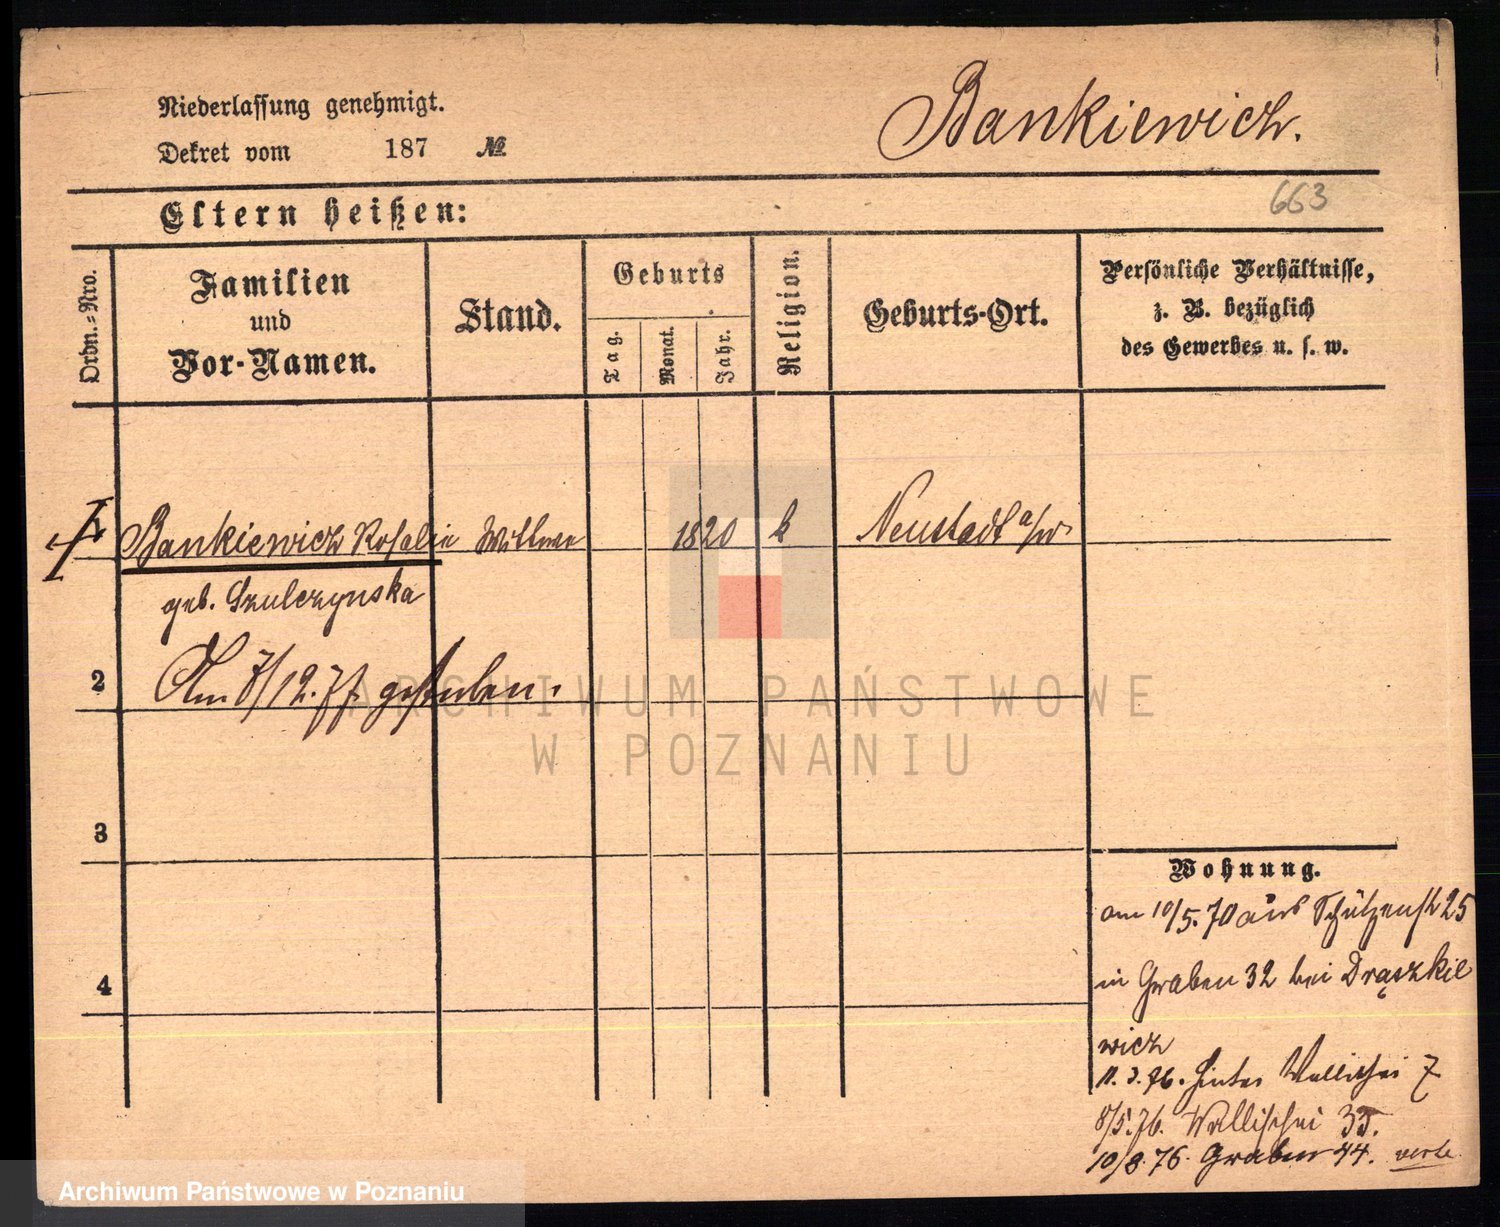 Niederlassung genehmigt.
Bankiewicz.
Dekret vom 187 №
Eltern heißen:
663
Ordn.-Nro.
Familien
und
Vor-Namen.
Stand.
Geburts
Tag.
Monat.
Jahr.
Religion.
Geburts-Ort.
Persönliche Verhältnisse,
z. B. bezüglich
des Gewerbes u. s. w.
Bankiewicz Rosalie Wittwe 1820 k Neustadt a/W
geb. Szulczynska
2
Am 7/12.77 gestorben.
3
4
Wohnung.
am 10/5.70 aus Schützenstr 25
in Graben 32 bei Drąszkie
wicz
11.3.76. Hinter Wallischei 7
8/5.76. Wallischei 33.
10/8.76. Graben 44. verte
ARCHIWUM PAŃSTWOWE
W POZNANIU
Archiwum Państwowe w Poznaniu